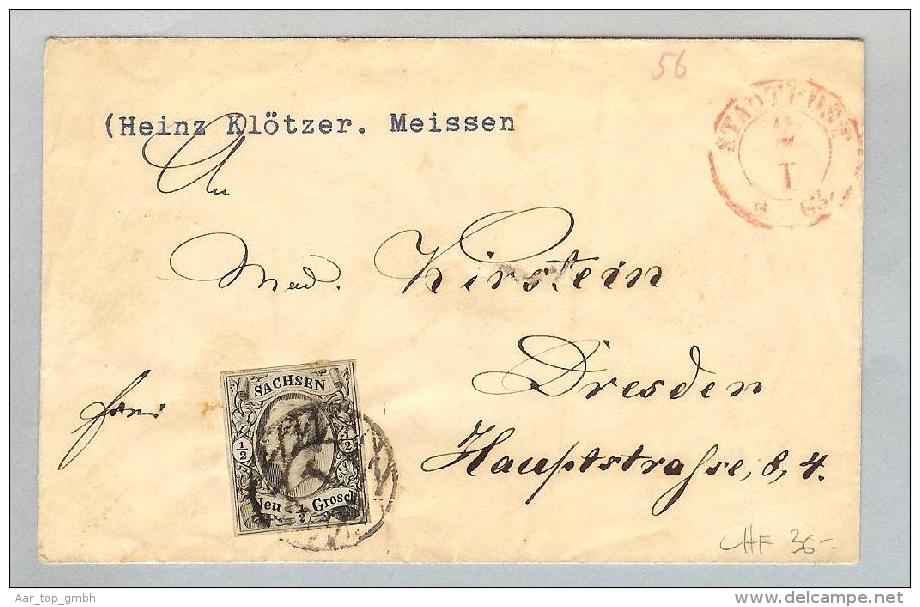 56
STADTPOST
2
I
(Heinz Klötzer. Meissen
An
Mad. Kirstein
Dresden
Hauptstraße, 8, 4.
frei
SACHSEN
1/2
1/2
Neu Grosch
1/2
CHF 36-
Aar_top_gmbh
www.delcampe.net